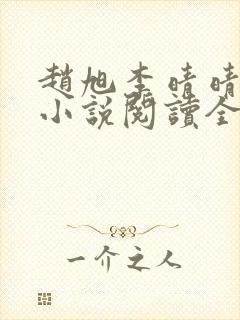 趙旭李晴晴
小說閱讀全
一介之人